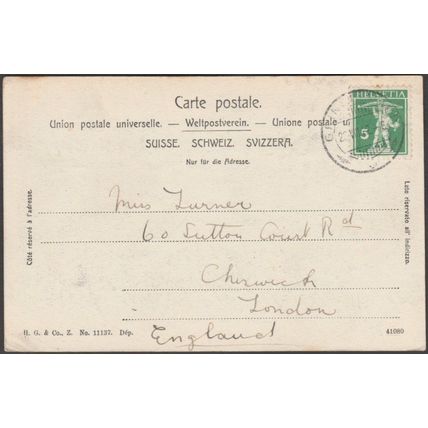 Carte postale.
Union postale universelle. — Weltpostverein. — Unione postale
SUISSE. SCHWEIZ. SVIZZERA.
Nur für die Adresse.
HELVETIA
5
Côté réservé à l'adresse.
Lato riservato all' indirizzo.
Miss Turner
60 Sutton Court Rd
Chiswick
London
England
H. G. & Co., Z. No. 11137. Dép.
41080